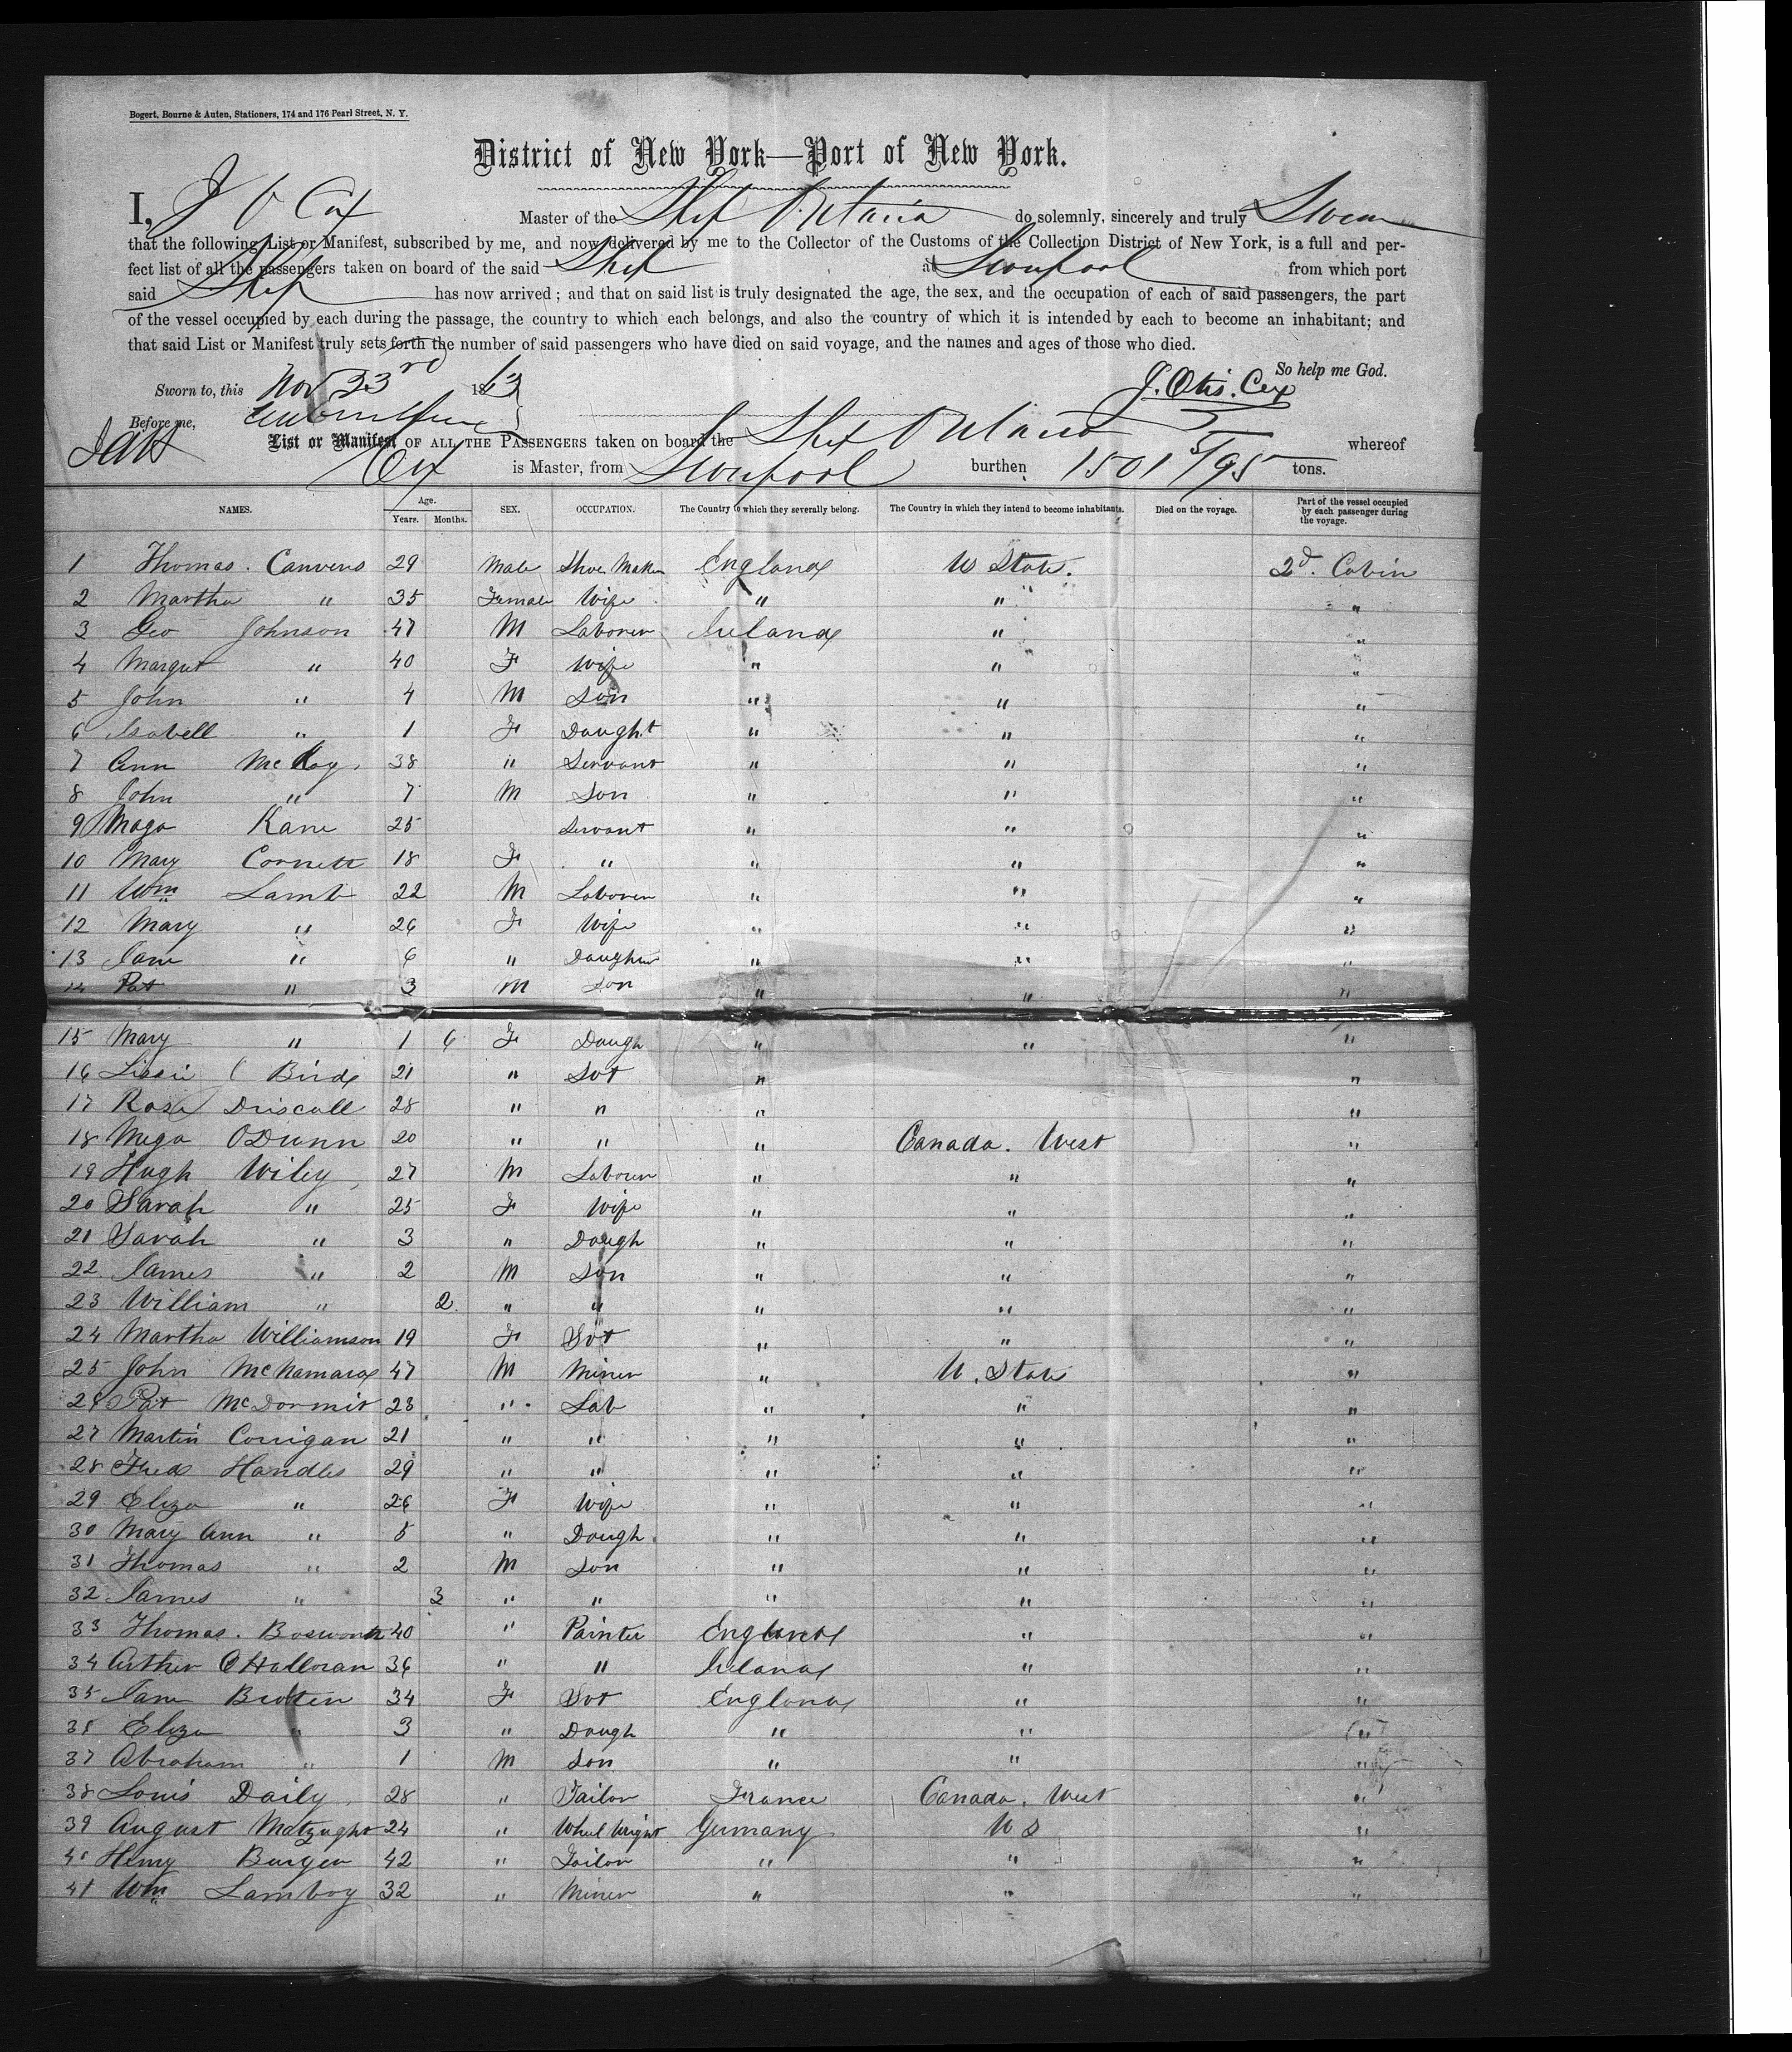 Bogert, Bourne & Auten, Stationers, 174 and 176 Pearl Street, N. Y.
District of New York—Port of New York.
I, J O Cox Master of the Ship Ontario do solemnly, sincerely and truly Swear
that the following List or Manifest, subscribed by me, and now delivered by me to the Collector of the Customs of the Collection District of New York, is a full and per-
fect list of all the passengers taken on board of the said Ship at Liverpool from which port
said Ship has now arrived; and that on said list is truly designated the age, the sex, and the occupation of each of said passengers, the part
of the vessel occupied by each during the passage, the country to which each belongs, and also the country of which it is intended by each to become an inhabitant; and
that said List or Manifest truly sets forth the number of said passengers who have died on said voyage, and the names and ages of those who died.
So help me God.
Sworn to, this Nov 23rd 1863 J. Otis. Cox
Before me,
List or Manifest OF ALL THE PASSENGERS taken on board the Ship Ontario whereof
Cox is Master, from Liverpool burthen 1501 5/95 tons.
NAMES. Age. Years. Months. SEX. OCCUPATION. The Country to which they severally belong. The Country in which they intend to become inhabitants. Died on the voyage. Part of the vessel occupied by each passenger during the voyage.
1 Thomas. 29 Male Shoe Maker England U State. 2d. Cabin
2 Martha " 35 Female Wife " " "
3 Geo Johnson 47 M Laborer Ireland " "
4 Margret " 40 F Wife " " "
5 John " 4 M Son " " "
6 Isabell " 1 F Daught " " "
7 Ann McKay 38 " Servant " " "
8 John " 7 M Son " " "
9 Mago Kane 25 Servant " " "
10 Mary Cornett 18 F " " " "
11 Wm Lamb 22 M Laborer " " "
12 Mary " 26 F Wife " " "
13 Jane " 6 " Daughter " " "
14 Pat " 3 M Son " " "
15 Mary " 1 6 F Daugh " " "
16 Lissie Bird 21 " Svt " "
17 Rose Driscoll 28 " " " "
18 Mega ODunn 20 " " " Canada. West "
19 Hugh Wiley 27 M Laborer " " "
20 Sarah " 25 F Wife " " "
21 Sarah " 3 " Daugh " " "
22 James " 2 M Son " " "
23 William " 2 " " " " "
24 Martha Williamson 19 F Svt " " "
25 John McNamara 47 M Miner " U. State "
26 Pat McDormit 23 " Lab " " "
27 Martin Corrigan 21 " " " " "
28 Fred Handles 29 " " " " "
29 Eliza " 26 F Wife " " "
30 Mary Ann " 5 " Daugh " " "
31 Thomas " 2 M Son " " "
32 James " 3 " " " " "
33 Thomas. Bosworth 40 " Painter England " "
34 Arther OHalloran 36 " " Ireland " "
35 Jane 34 F Svt England " "
36 Eliza " 3 " Daugh " " "
37 Abraham " 1 M Son " " "
38 Louis Daily 28 " Tailor France Canada. West "
39 August 24 " Wheel Wright Germany U S "
40 Henry Burger 42 " Tailor " " "
41 Wm Lamboy 32 " Miner " " "